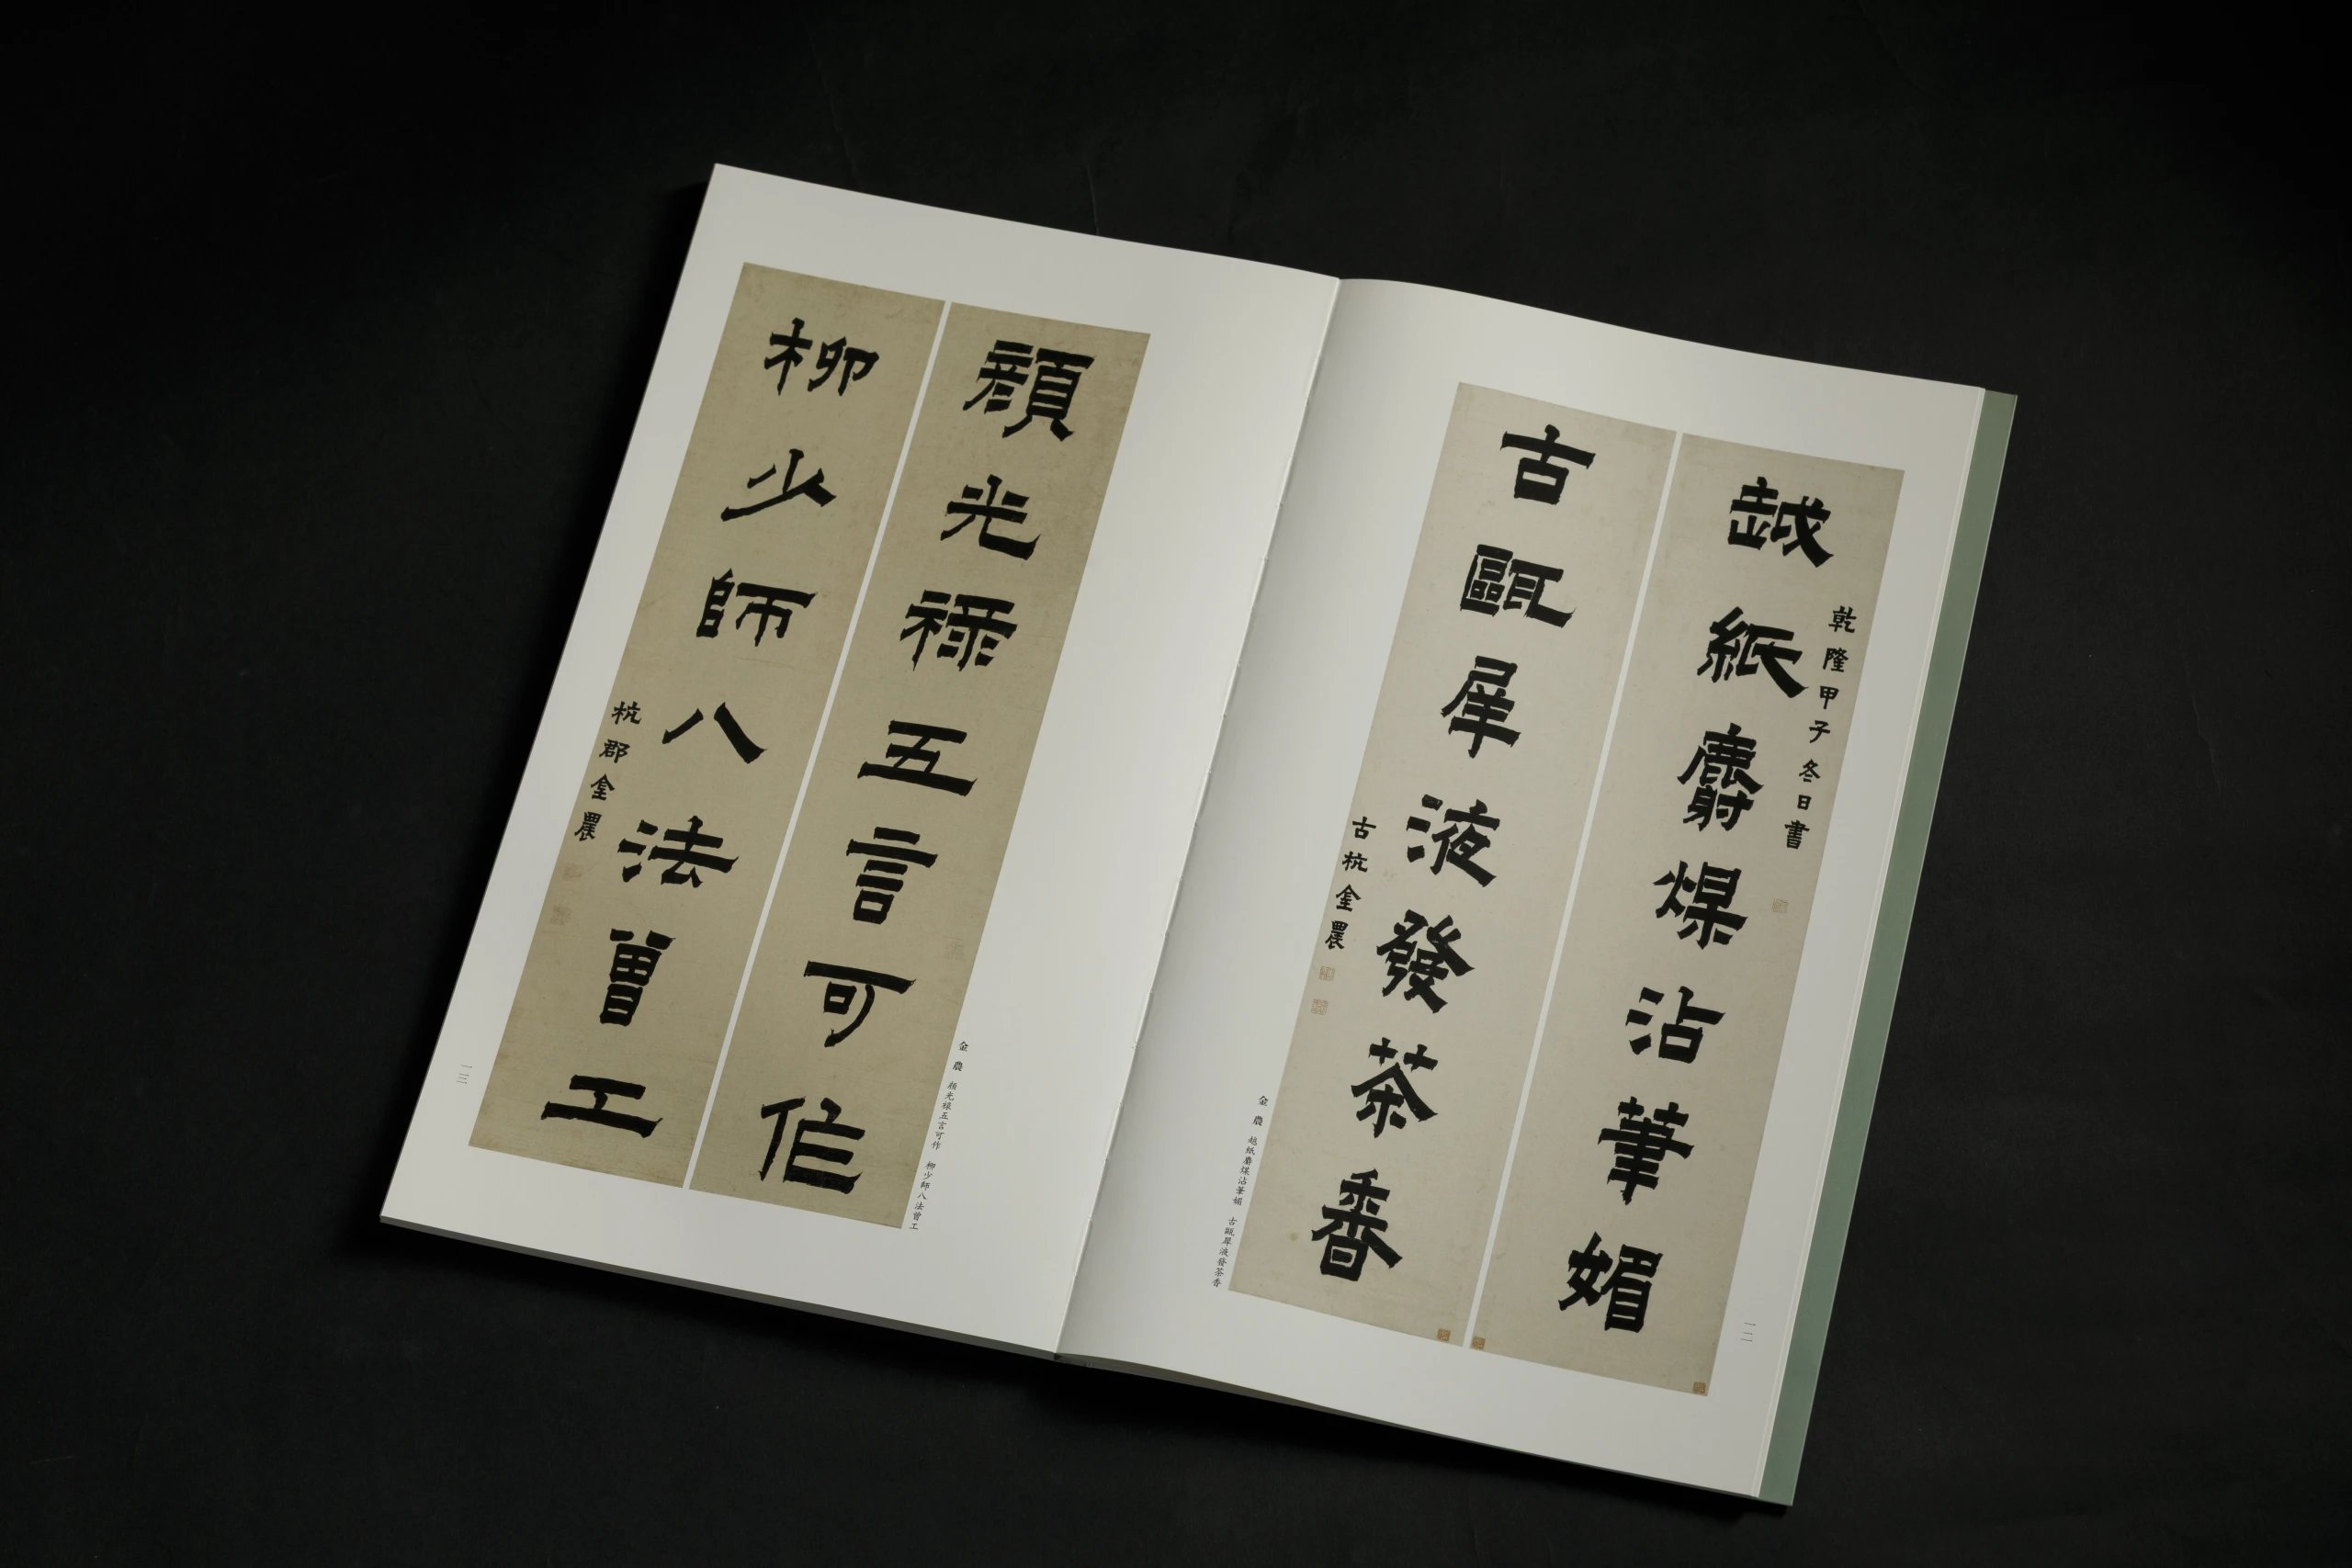 越紙麝煤沾筆媚
乾隆甲子冬日書
古甌犀液發茶香
古杭金農
金農 越紙麝煤沾筆媚 古甌犀液發茶香
一二
顏光祿五言可作
金農 顏光祿五言可作 柳少師八法曾工
柳少師八法曾工
杭郡金農
一三